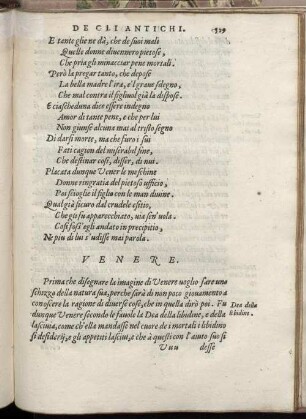 DE GLI ANTICHI. 529
E tante glie ne dà, che de suoi modi
Quelle donne diuennero pietose,
Che pria gli minacciar pene mortali.
Però la pregar tanto, che depose
La bella madre l'ira, e'l graue sdegno,
Che mal contra il figliuol già la dispose.
E ciascheduna dice essere indegno
Amor di tante pene, e che per lui
Non giunse alcuna mai al tristo segno
Di darsi morte, ma che furo i sui
Fati cagion del miserabil fine,
Che destinar così, disser, di nui.
Placata dunque Vener le meschine
Donne ringratia del pietoso ufficio,
Poi scioglie il figlio con le man diuine.
Qual già sicuro dal crudele esitio,
Che gli fu apparecchiato, uia sen' uola.
Così fosse egli andato in precipitio,
Ne piu di lui s'udisse mai parola.
VENERE.
Prima che disegnare la imagine di Venere uoglio fare uno
schizzo della natura sua, perche sarà di non poco giouamento a
conoscere la ragione di diuerse cose, che in questa dirò poi. Fu
dunque Venere secondo le fauole la Dea della libidine, e della
lasciuia, come ch'ella mandasse nel cuore de i mortali i libidino
si desiderij, e gli appetiti lasciui, e che à questi con l'aiuto suo si
Dea della
libidine.
Vuu desse